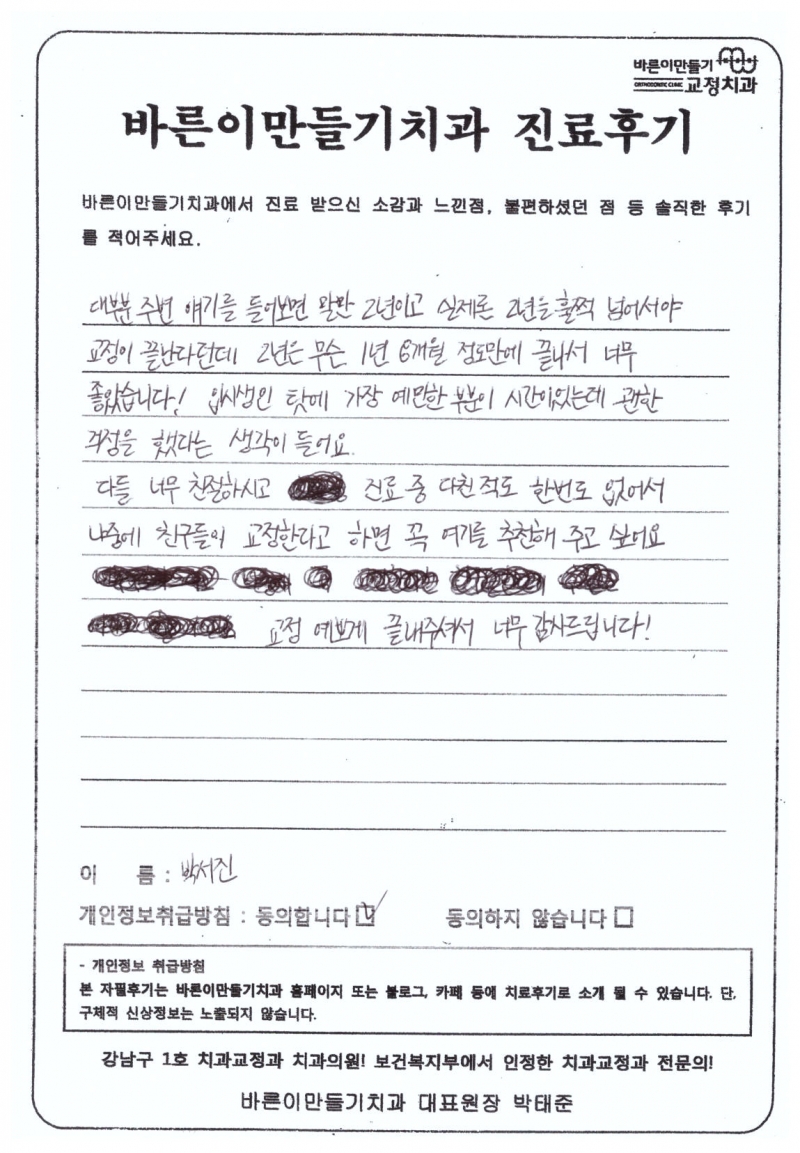 바른이만들기
ORTHODONTIC CLINIC 교정치과
바른이만들기치과 진료후기
바른이만들기치과에서 진료 받으신 소감과 느낀점, 불편하셨던 점 등 솔직한 후기
를 적어주세요.
대부분 주변 얘기를 들어보면 말만 2년이고 실제론 2년을 훌쩍 넘어서야
교정이 끝난다던데 2년은 무슨 1년 6개월 정도만에 끝나서 너무
좋았습니다! 입시생인 탓에 가장 예민한 부분이 시간이었는데 괜한
걱정을 했다는 생각이 들어요.
다들 너무 친절하시고 진료 중 다친 적도 한번도 없어서
나중에 친구들이 교정한다고 하면 꼭 여기를 추천해 주고 싶어요
교정 예쁘게 끝내주셔서 너무 감사드립니다!
이 름 : 박서진
개인정보취급방침 : 동의합니다 동의하지 않습니다
- 개인정보 취급방침
본 자필후기는 바른이만들기치과 홈페이지 또는 블로그, 카페 등에 치료후기로 소개 될 수 있습니다. 단,
구체적 신상정보는 노출되지 않습니다.
강남구 1호 치과교정과 치과의원! 보건복지부에서 인정한 치과교정과 전문의!
바른이만들기치과 대표원장 박태준